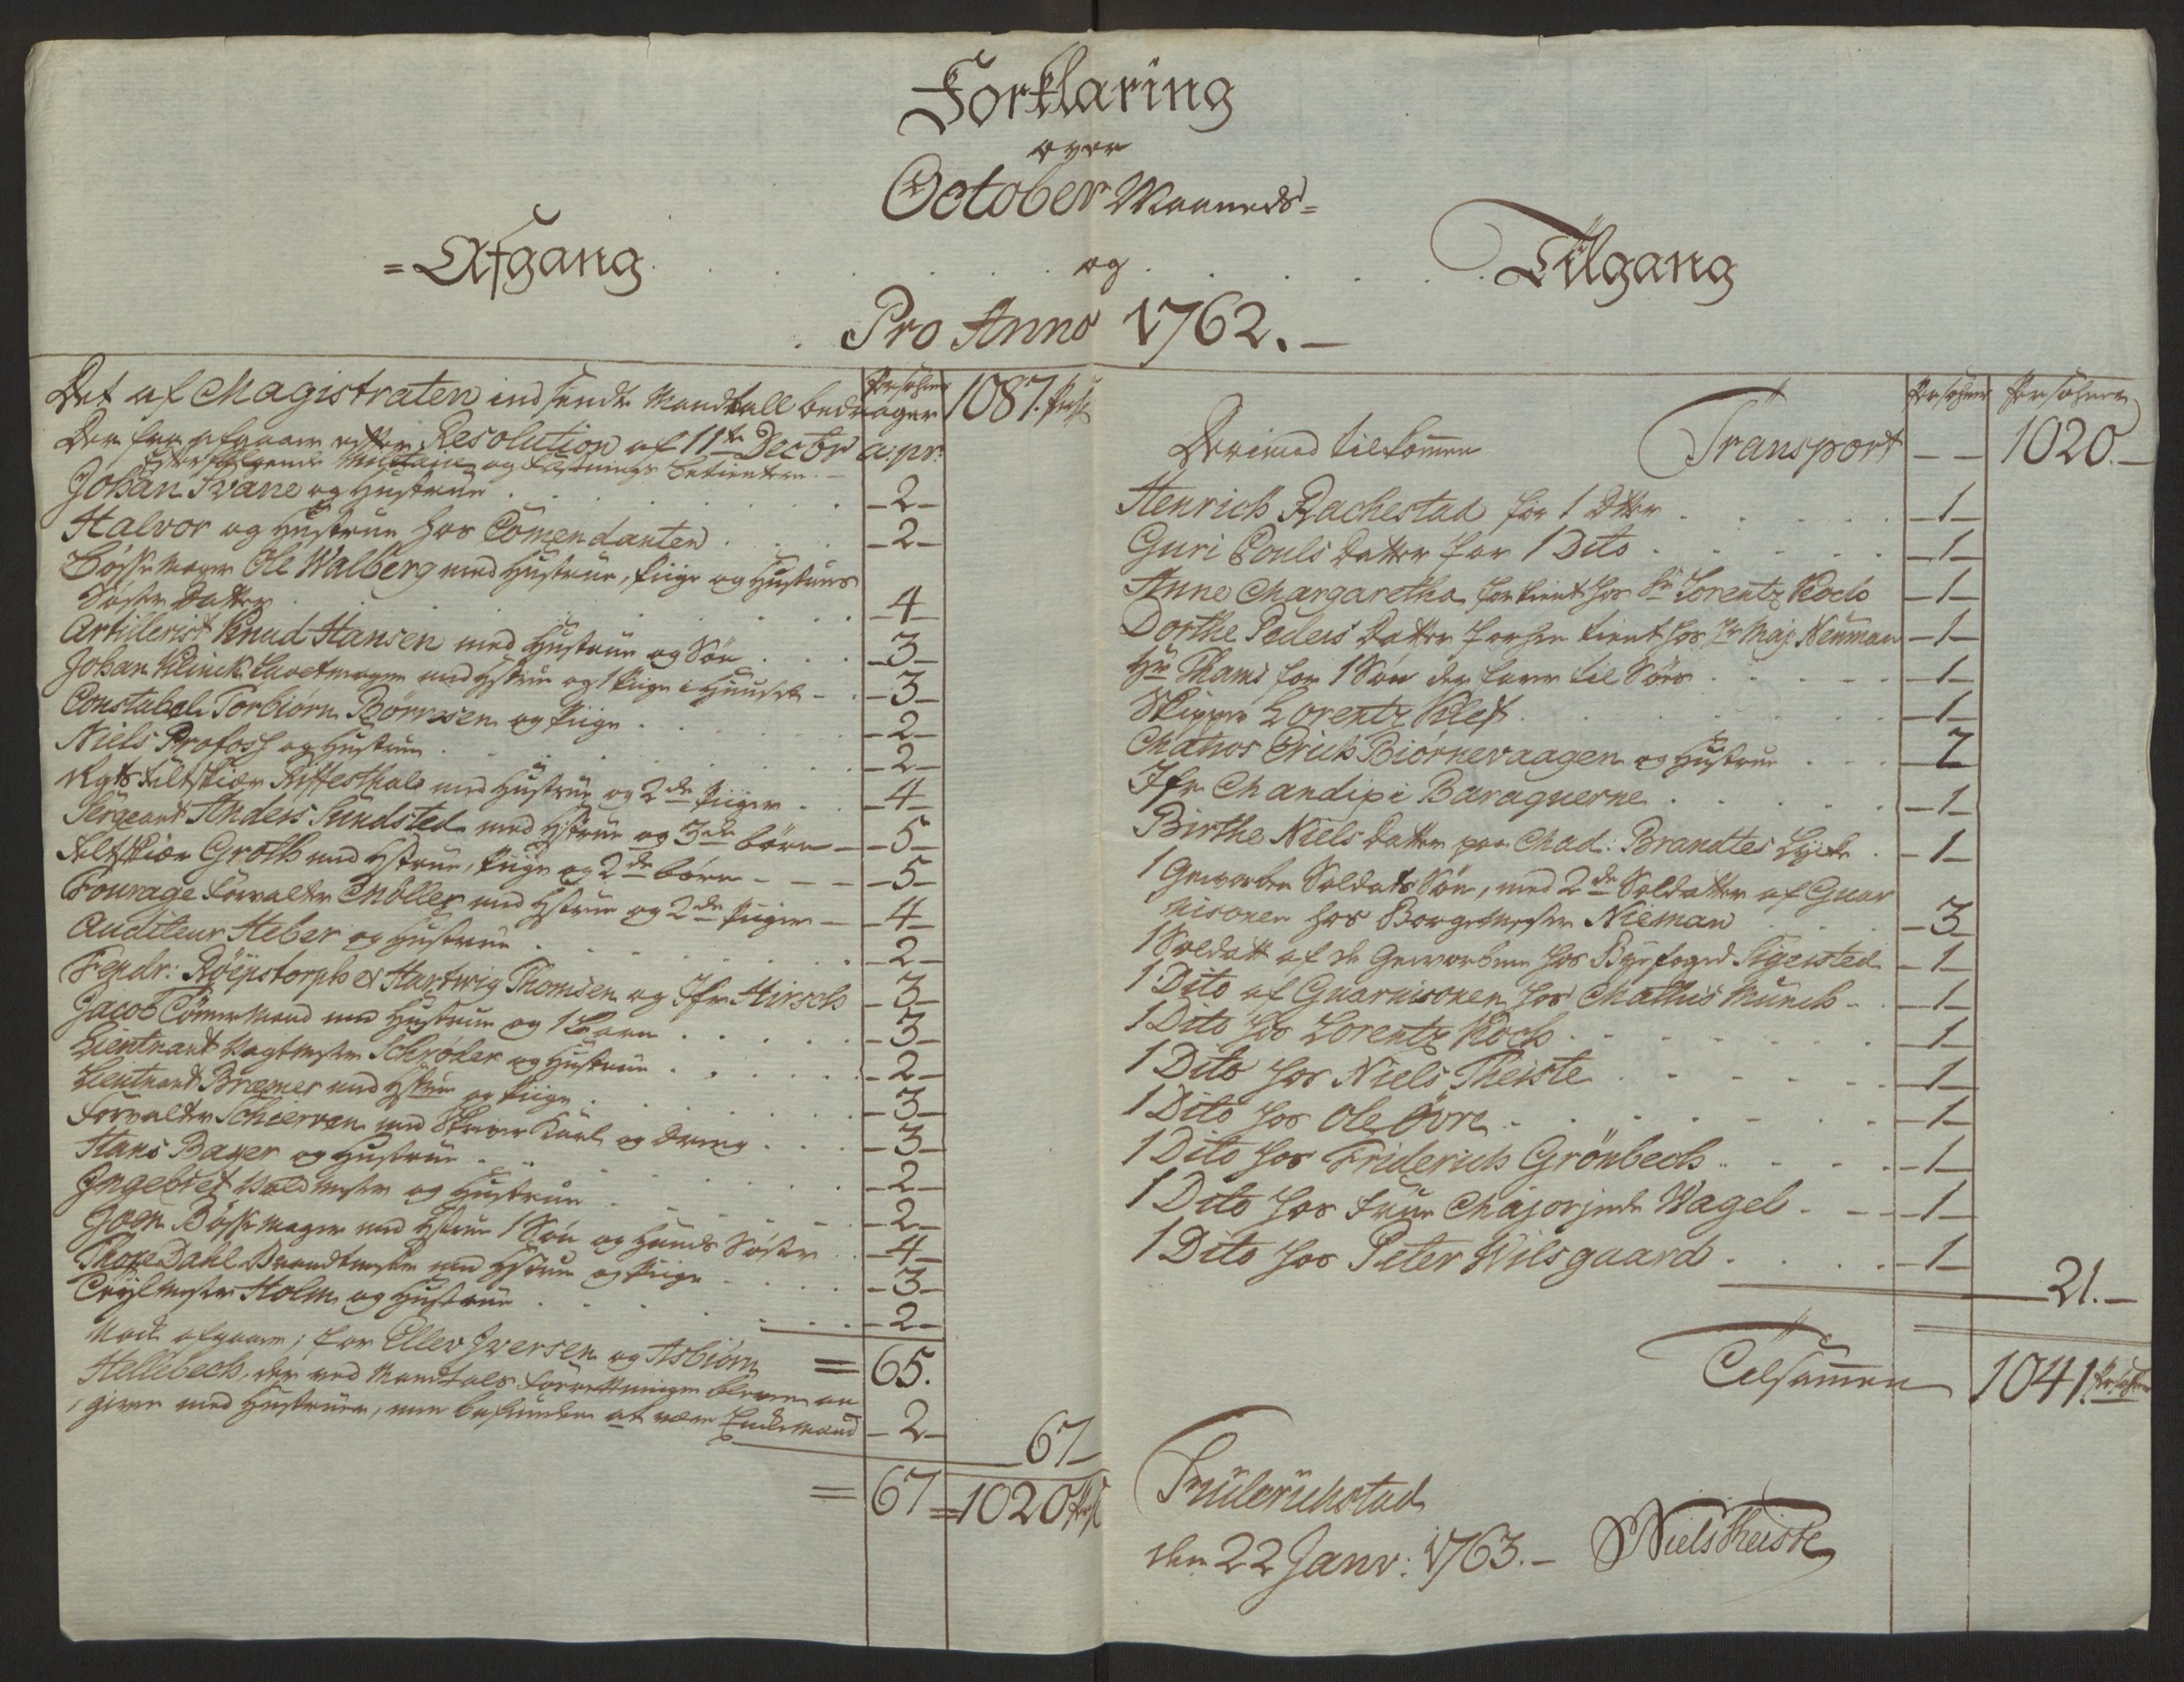 Forklaring
over
October Maaneds=
=Afgang . . . og . . . Tilgang
Pro Anno 1762.
Persohner
Det af Magistraten indsendte Mandtall bedrager 1087. Pers:
Der fra afgaaer efter Resolution af 11te Decbr a: pr:
Efterfølgende Militaire og Festnings betientere.
Johan Svane og Hustrue . . . -2-
Halvor og Hustrue hos Comendanten . . . -2-
Bösse mager Ole Walberg med Hustrue, Piige og Hustrues
Söster Datter . . . -4-
Artillerist Knud Hansen med Hustrue og Sön . . . -3-
Johan Klinck Lavetmager med Hstrue og 1 Piige i Huuset - -3-
Constabel Torbiörn Börresen og Piige . . . -2-
Niels Profoss og Hustrue . . . -2-
Rgts Feltskiær Riffesthale med Hustrue og 2de Piiger . . -4-
Sergeant Anders Sundsted med Hstrue og 3de börn - -5-
Feltskiær Groth med Hstrue, Piige og 2de börn - - - -5-
Fourage Forvalter Möller med Hstrue og 2de Piiger - -4-
Auditeur Heber og Hustrue . . . -2-
Fendr: Röepstorph & Hartwig Thomsen og Jfr Hirsch -3-
Jacob Tömmermand med Hustrue og 1 Barn . . . -3-
Lieutnant Vagtmester Schröder og Hustrue . . . -2-
Lieutnant Bremer med Hstrue og Piige . . . -3-
Forvalter Schierven med Skriver Karl og Dreng . . . -3-
Hans Bayer og Hustrue . . . -2-
Ingebret Voldmester og Hustrue . . . -2-
Joen Bösse mager med Hstrue 1 Sön og Hands Söster . . -4-
Thore Dahl Brandtmester med Hstrue og Piige . . . -3-
Töylmester Holm og Hustrue . . . -2-
= 65.
Nock afgaaer; for Ellev Iversen og Asbiörn
Hellebech, der ved Mandtals Forrettningen bleven an
given med Hustruer, men befunden at være Enckemænd -2- 67-
= 67 = 1020 Pers:
Persohner Persohner
Transport - - 1020.-
Derimod tilkommer
Henrich Rachestad for 1 Dtter . . . -1-
Guri Pouls Datter for 1 Dito . . . -1-
Anne Margaretha for tient hos Sr Lorentz Koch -1-
Dorthe Peders Datter forhen tient hos Hr Maj: Neuman -1-
Hr Thams for 1 Sön der farer til Söes . . . -1-
Skipper Lorentz Klest . . . -1-
Matros Erich Biörnevaagen og Hustrue . . . 2
Jfr Mandip i Baraquerne . . . -1-
Birthe Niels Datter paa Mad: Brandtes Lycke . -1-
1 Geworben Soldats Sön, med 2de Soldatter af Guar
nisonen hos Borgemester Nieman . . . -3-
1 Soldatt af de Geworbene hos Byefoged Sigersted -1-
1 Dito af Guarnisonen hos Mathis Munch - -1-
1 Dito hos Lorentz Koch . . . -1-
1 Dito hos Niels Theiste . . . -1-
1 Dito hos Ole Övre . . . -1-
1 Dito hos Friderich Grönbech . . . -1-
1 Dito hos Frue Majorinde Wagel . . . -1-
1 Dito hos Peter Wilsgaard . . . -1-
21.-
Tilsammen 1041. Persohner
Friderichstad
den 22 Janv: 1763.- Niels Theiste